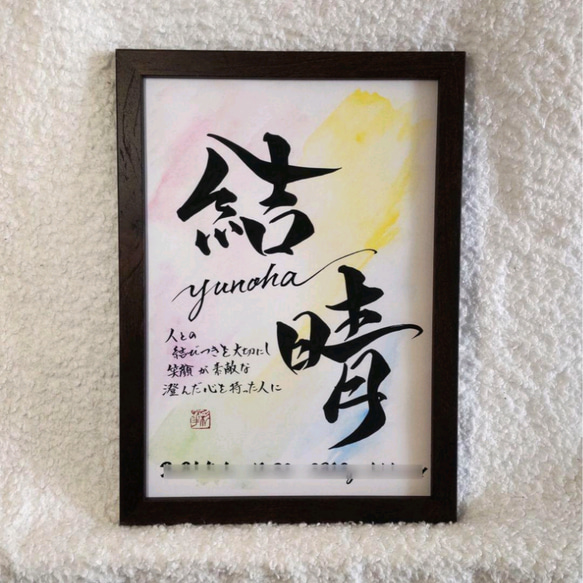 結
yunoha
晴
人との
結びつきを大切にし
笑顔が素敵な
澄んだ心を持った人に